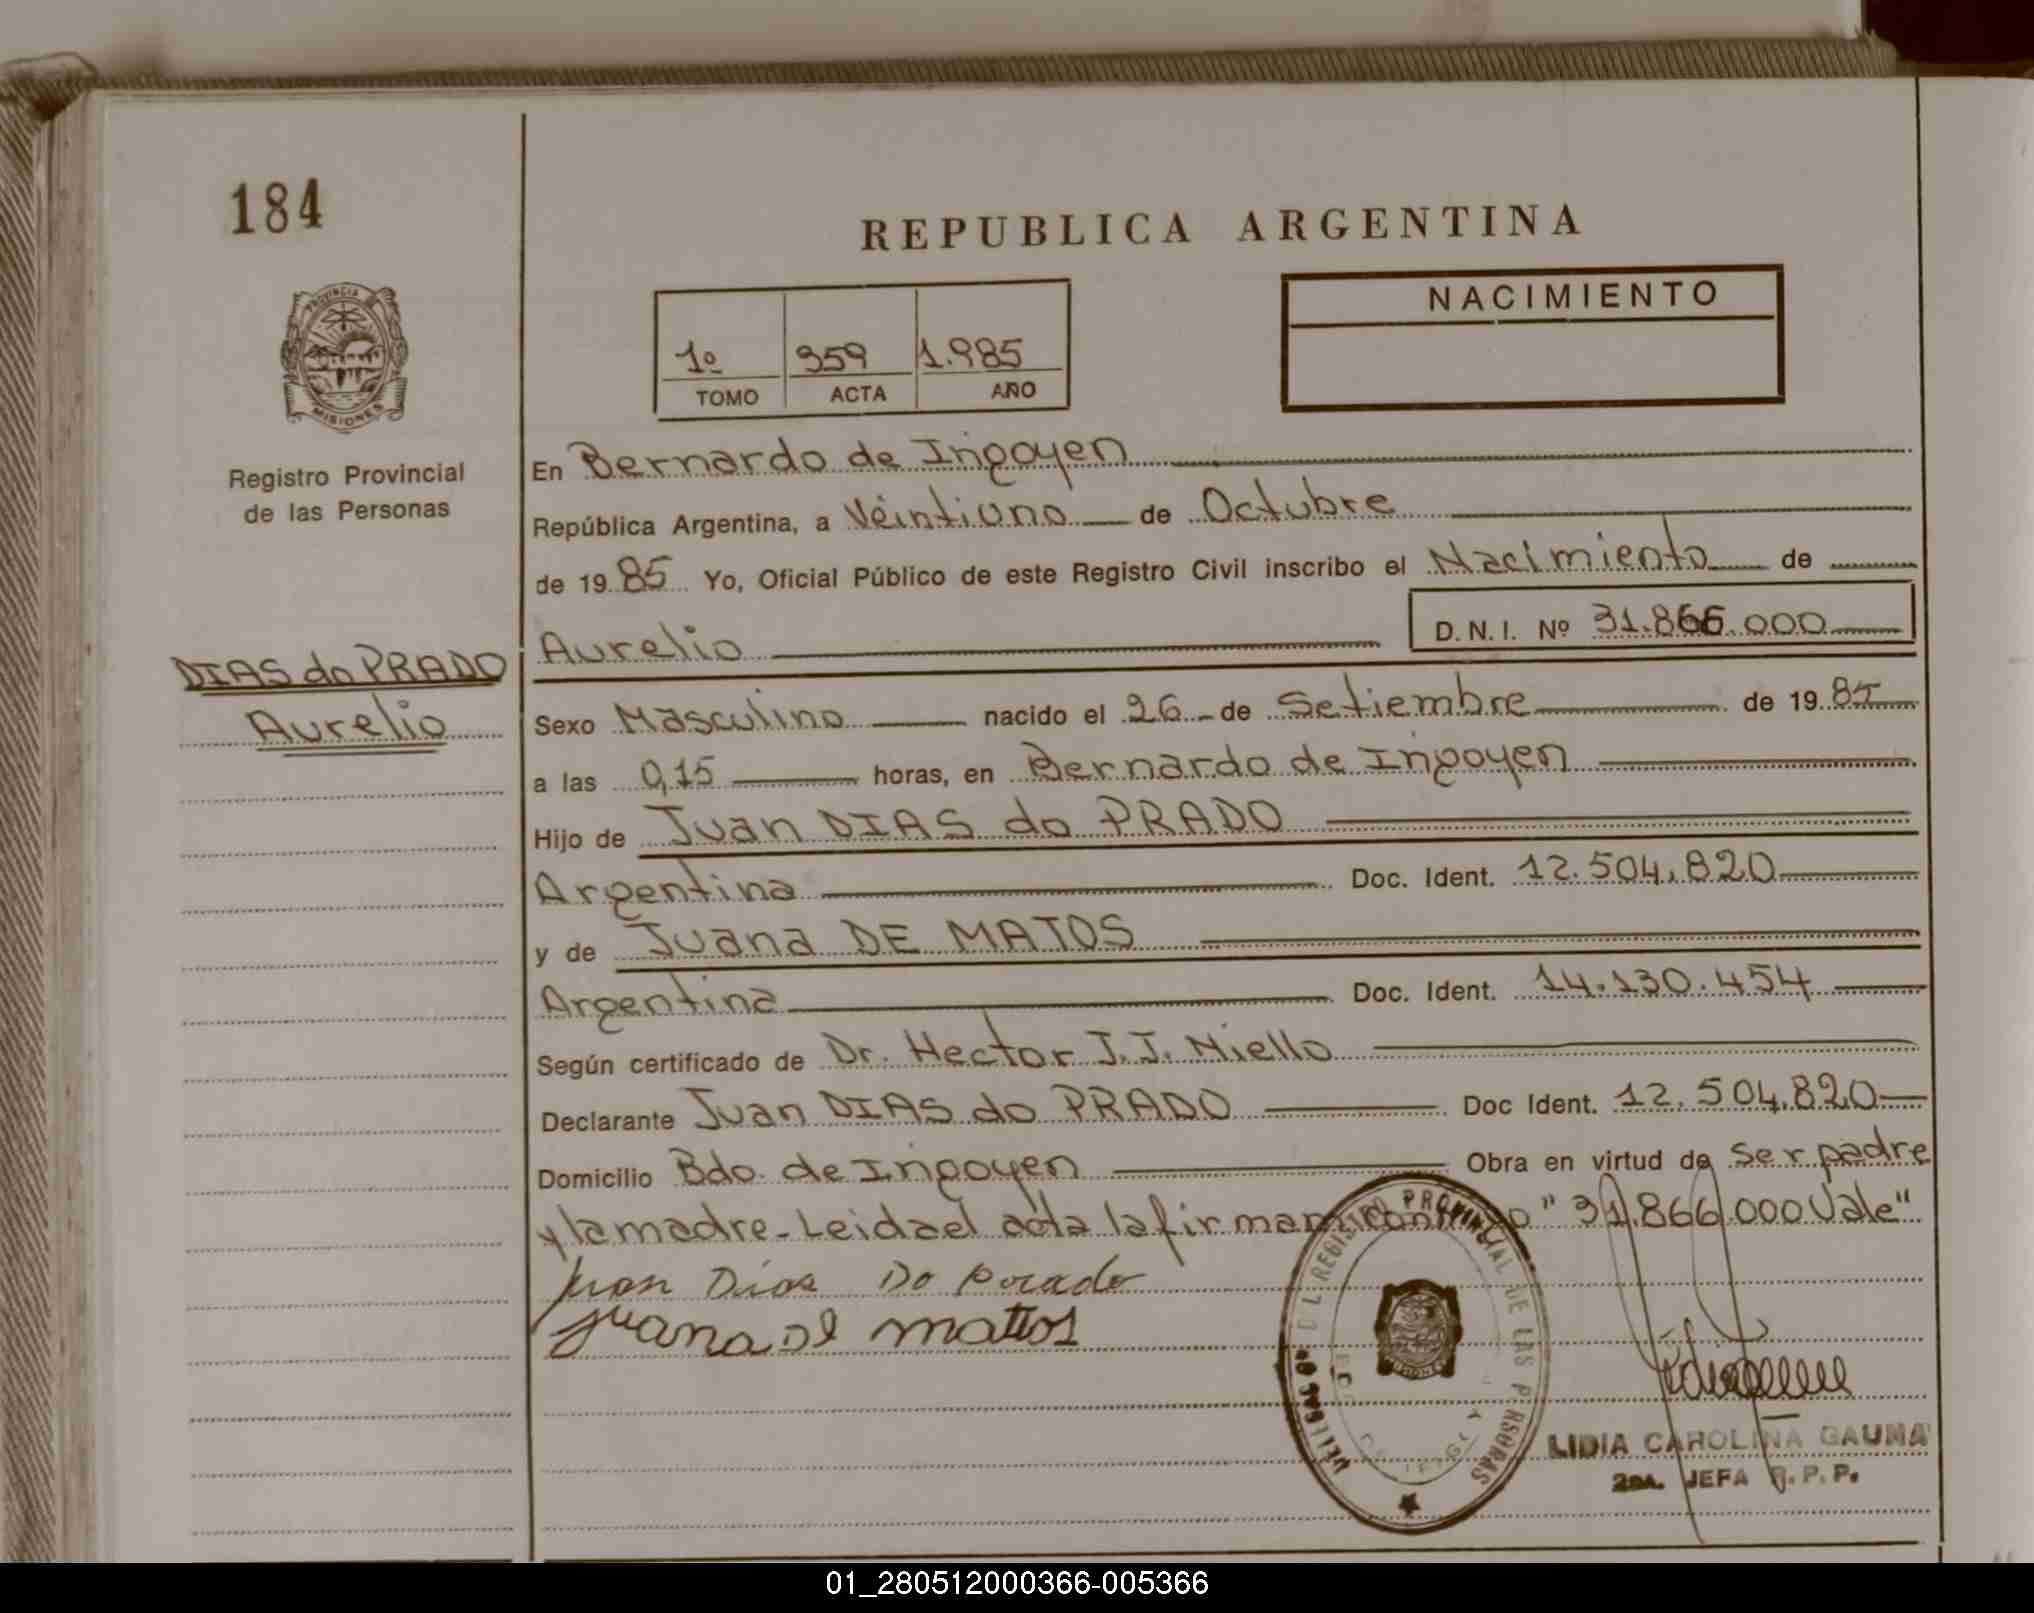 184
REPUBLICA ARGENTINA
PROVINCIA
MISIONES
NACIMIENTO
1º 359 1.985
TOMO ACTA AÑO
Registro Provincial
de las Personas
En Bernardo de Irigoyen
República Argentina, a Veintiuno de Octubre
de 1985 Yo, Oficial Público de este Registro Civil inscribo el Nacimiento de
Aurelio D.N.I. Nº 31.866.000
DIAS do PRADO
Aurelio
Sexo Masculino nacido el 26 de Setiembre de 1985
a las 0,15 horas, en Bernardo de Irigoyen
Hijo de Juan DIAS do PRADO
Argentina Doc. Ident. 12.504.820
y de Juana DE MATOS
Argentina Doc. Ident. 14.130.454
Según certificado de Dr. Hector J.J. Niello
Declarante Juan DIAS do PRADO Doc Ident. 12.504.820
Domicilio Bdo. de Irigoyen Obra en virtud de ser padre
y la madre - Leida el acta la firman conmigo "31.866.000 Vale"
Juan Dias Do Prado
Juana de mattos
DEL REGISTRO PROVINCIAL DE LAS PERSONAS
LIDIA CAROLINA GAUNA
2DA. JEFA R.P.P.
01_280512000366-005366